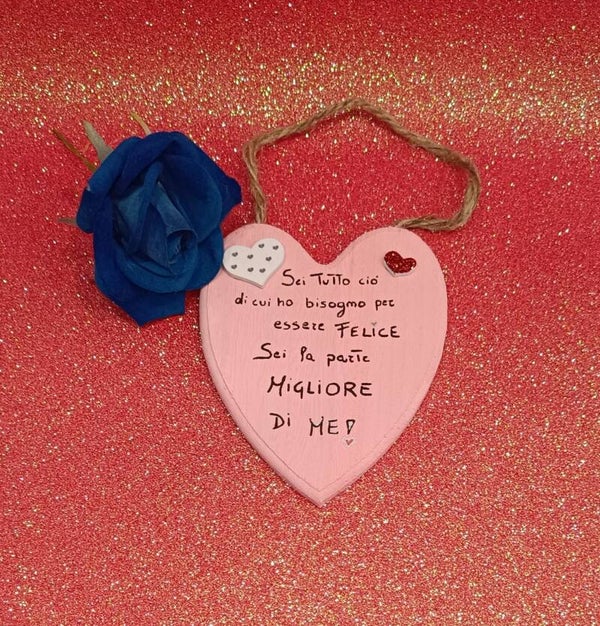 Sei Tutto ciò
di cui ho bisogno per
essere FELICE
Sei la parte
MiGLiORE
Di ME!